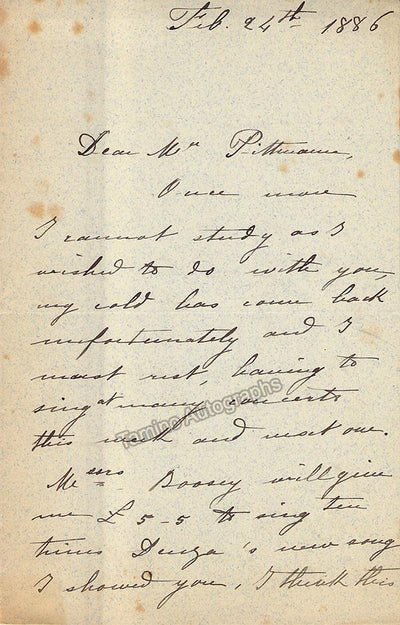 Feb. 24th 1886
Dear Mr Pittmann,
Once more
I cannot study as I
wished to do with you,
my cold has come back
unfortunately and I
must rest, having to
sing at many concerts
this week and next one.
Messrs Boosey will give
me £ 5-5 to sing ten
times Denza's new song
I showed you, I think this
Tamino Autographs